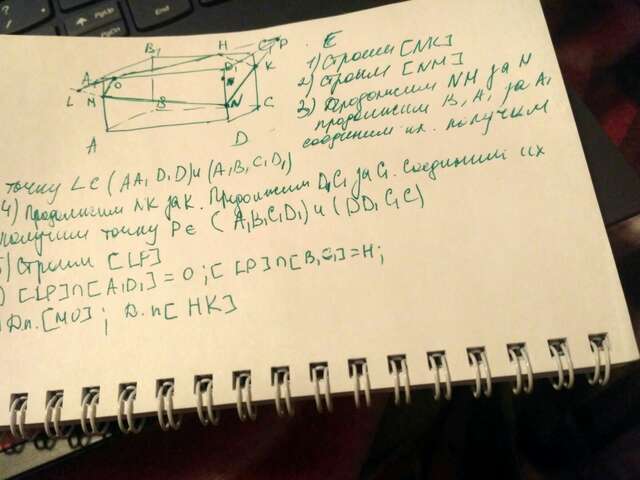 B₁ H C₁ P
A₁ O D₁ K
L M B N C
A D
E
1) Строим [NK]
2) Строим [NM]
3) Продолжим NM за M
продолжим B₁A₁ за A₁
соединим их. получим
точку L ∈ (AA₁D₁D) и (A₁B₁C₁D₁)
4) Продолжим NK за K. Продолжим D₁C₁ за C₁. соединим их
получим точку P ∈ (A₁B₁C₁D₁) и (DD₁C₁C)
5) Строим [LP]
) [LP]∩[A₁D₁] = O ; [LP]∩[B₁C₁] = H ;
) Дп. [MO] ; Д.п [HK]